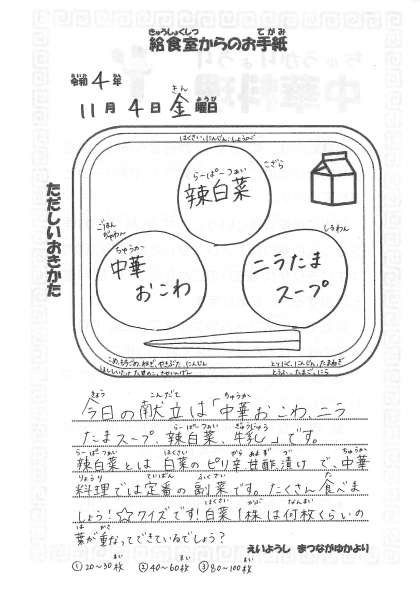 きゅうしょくしつ てがみ
給食室からのお手紙
れいわ ねん
令和4年
きん ようび
11月4日金曜日
はくさい、にんじん、しょうが
らーぱーつぁい
辣白菜
こざら
ただしいおきかた
ごはん
ぢゃわん
ちゅうか
中華
おこわ
しるわん
ニラたま
スープ
とりにく、にんじん、たまねぎ
とうふ、たまご、にら
きょう こんだて ちゅうか
今日の献立は「中華おこわ、ニラ
らーぱーつぁい ぎゅうにゅう
たまスープ、辣白菜、牛乳」です。
らーぱーつぁい はくさい から あまず づ ちゅうか
辣白菜とは白菜のピリ辛甘酢漬けで、中華
りょうり ていばん ふくさい た
料理では定番の副菜です。たくさん食べま
はくさい かぶ なんまい
しょう!☆クイズです!白菜1株は何枚くらいの
は かさ
葉が重なってできているでしょう?
えいようし まつながゆかより
まい まい まい
①20~30枚 ②40~60枚 ③80~100枚